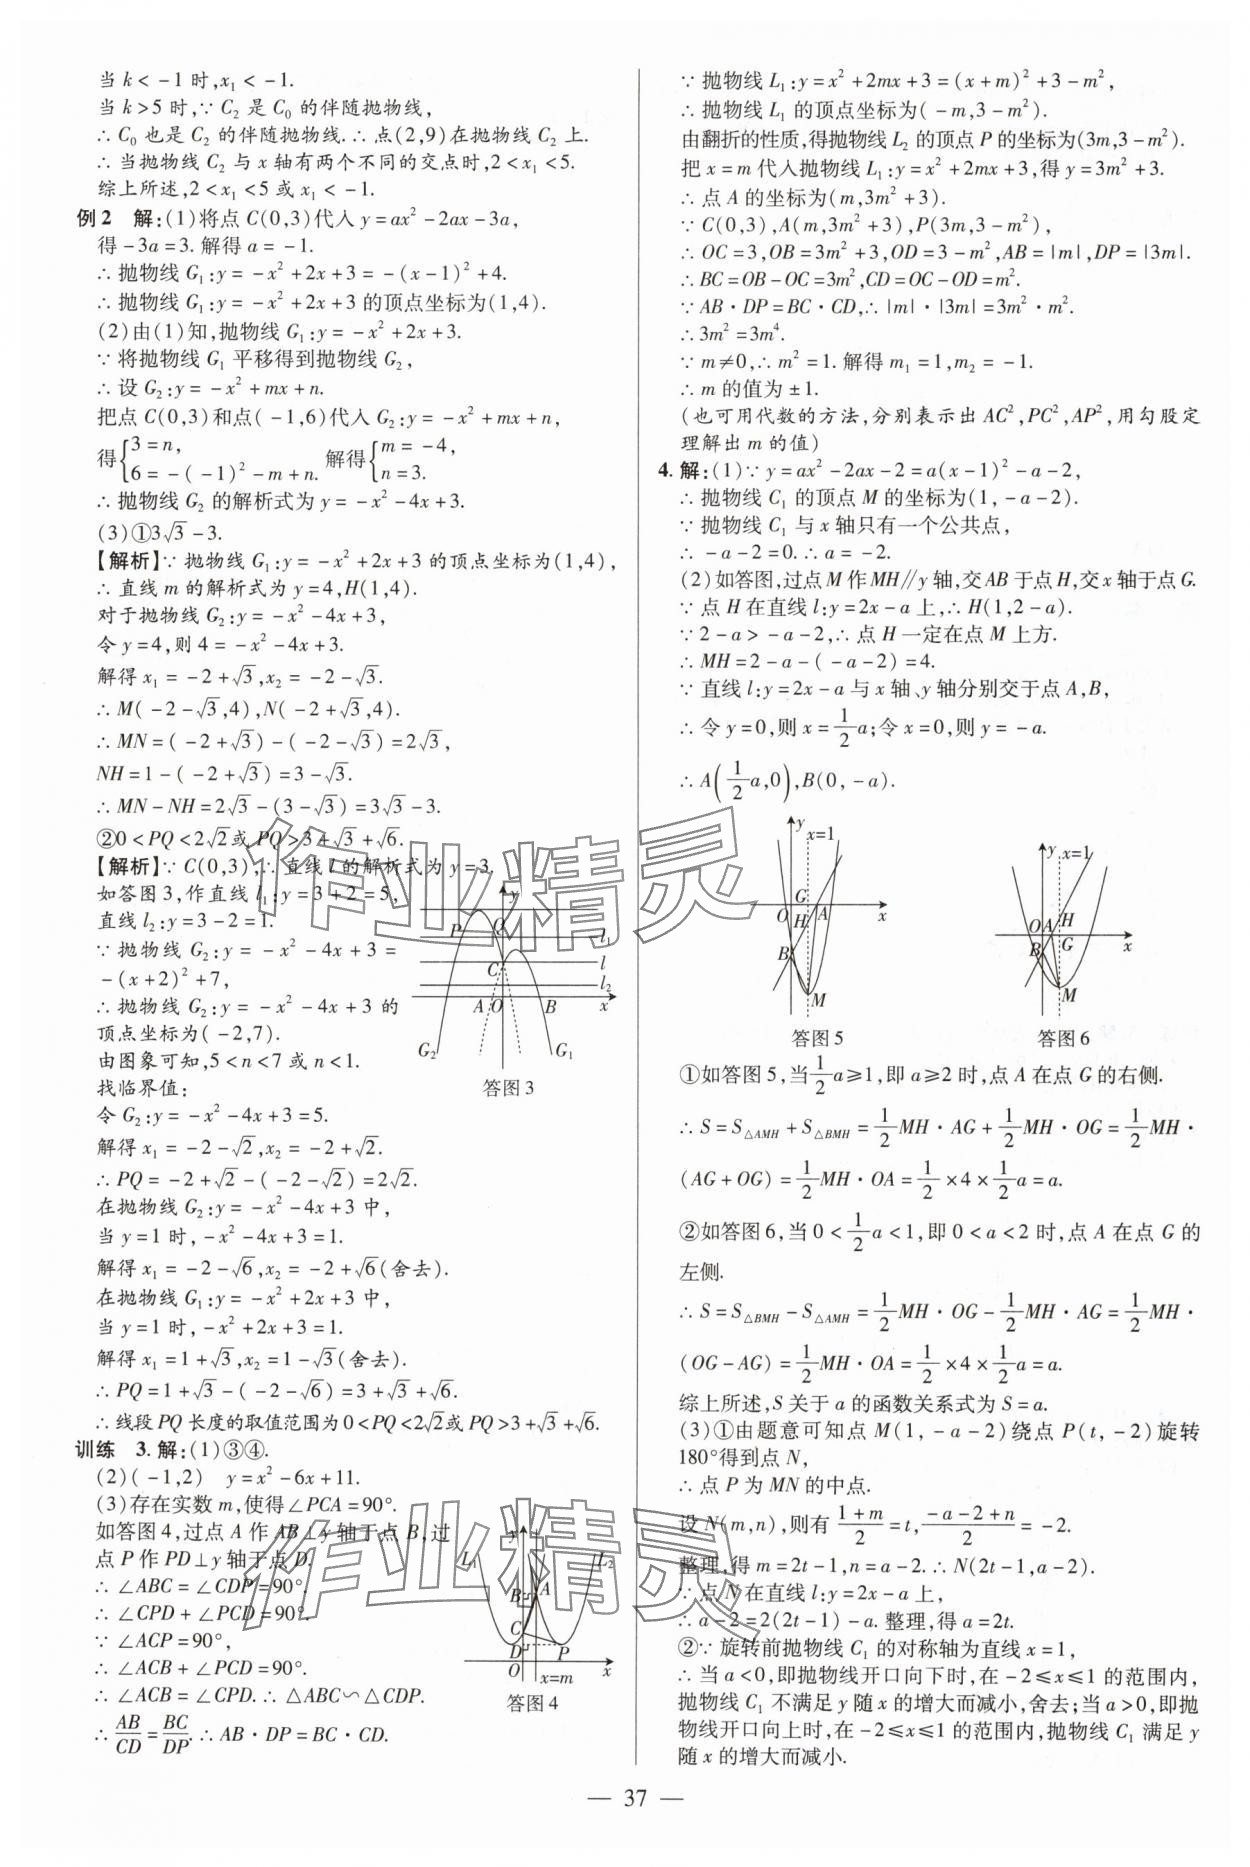 当 k < -1 时,x₁ < -1.
当 k > 5 时,∵ C₂ 是 C₀ 的伴随抛物线,
∴ C₀ 也是 C₂ 的伴随抛物线.∴ 点(2,9)在抛物线 C₂ 上.
∴ 当抛物线 C₂ 与 x 轴有两个不同的交点时,2 < x₁ < 5.
综上所述,2 < x₁ < 5 或 x₁ < -1.
例 2 解:(1)将点 C(0,3)代入 y = ax² - 2ax - 3a,
得 -3a = 3. 解得 a = -1.
∴ 抛物线 G₁:y = -x² + 2x + 3 = -(x-1)² + 4.
∴ 抛物线 G₁:y = -x² + 2x + 3 的顶点坐标为(1,4).
(2)由(1)知,抛物线 G₁:y = -x² + 2x + 3.
∵ 将抛物线 G₁ 平移得到抛物线 G₂,
∴ 设 G₂:y = -x² + mx + n.
把点 C(0,3)和点(-1,6)代入 G₂:y = -x² + mx + n,
得{3 = n, 6 = -(-1)² - m + n. 解得{m = -4, n = 3.
∴ 抛物线 G₂ 的解析式为 y = -x² - 4x + 3.
(3)①3√3 - 3.
【解析】∵ 抛物线 G₁:y = -x² + 2x + 3 的顶点坐标为(1,4),
∴ 直线 m 的解析式为 y = 4,H(1,4).
对于抛物线 G₂:y = -x² - 4x + 3,
令 y = 4,则 4 = -x² - 4x + 3.
解得 x₁ = -2 + √3,x₂ = -2 - √3.
∴ M(-2 - √3,4),N(-2 + √3,4).
∴ MN = (-2 + √3) - (-2 - √3) = 2√3,
NH = 1 - (-2 + √3) = 3 - √3.
∴ MN - NH = 2√3 - (3 - √3) = 3√3 - 3.
②0 < PQ < 2√2 或 PQ > 3 + √3 + √6.
【解析】∵ C(0,3),∴ 直线 l 的解析式为 y = 3.
如答图 3,作直线 l₁:y = 3 + 2 = 5,
直线 l₂:y = 3 - 2 = 1.
∵ 抛物线 G₂:y = -x² - 4x + 3 =
-(x+2)² + 7,
∴ 抛物线 G₂:y = -x² - 4x + 3 的
顶点坐标为(-2,7).
由图象可知,5 < n < 7 或 n < 1.
找临界值:
y P Q l₁ C l l₂ A O B x G₂ G₁
答图 3
令 G₂:y = -x² - 4x + 3 = 5.
解得 x₁ = -2 - √2,x₂ = -2 + √2.
∴ PQ = -2 + √2 - (-2 - √2) = 2√2.
在抛物线 G₂:y = -x² - 4x + 3 中,
当 y = 1 时,-x² - 4x + 3 = 1.
解得 x₁ = -2 - √6,x₂ = -2 + √6(舍去).
在抛物线 G₁:y = -x² + 2x + 3 中,
当 y = 1 时,-x² + 2x + 3 = 1.
解得 x₁ = 1 + √3,x₂ = 1 - √3(舍去).
∴ PQ = 1 + √3 - (-2 - √6) = 3 + √3 + √6.
∴ 线段 PQ 长度的取值范围为 0 < PQ < 2√2 或 PQ > 3 + √3 + √6.
训练 3. 解:(1)③④.
(2)(-1,2) y = x² - 6x + 11.
(3)存在实数 m,使得∠PCA = 90°.
如答图 4,过点 A 作 AB⊥y 轴于点 B,过
点 P 作 PD⊥y 轴于点 D.
∴ ∠ABC = ∠CDP = 90°.
∴ ∠CPD + ∠PCD = 90°.
∵ ∠ACP = 90°,
∴ ∠ACB + ∠PCD = 90°.
∴ ∠ACB = ∠CPD.∴ △ABC∽△CDP.
∴ AB/CD = BC/DP.∴ AB·DP = BC·CD.
L₁ y L₂ B A C D P O x=m x
答图 4
∵ 抛物线 L₁:y = x² + 2mx + 3 = (x + m)² + 3 - m²,
∴ 抛物线 L₁ 的顶点坐标为(-m,3 - m²).
由翻折的性质,得抛物线 L₂ 的顶点 P 的坐标为(3m,3 - m²).
把 x = m 代入抛物线 L₁:y = x² + 2mx + 3,得 y = 3m² + 3.
∴ 点 A 的坐标为(m,3m² + 3).
∵ C(0,3),A(m,3m² + 3),P(3m,3 - m²),
∴ OC = 3,OB = 3m² + 3,OD = 3 - m²,AB = |m|,DP = |3m|.
∴ BC = OB - OC = 3m²,CD = OC - OD = m².
∵ AB·DP = BC·CD,∴ |m|·|3m| = 3m²·m².
∴ 3m² = 3m⁴.
∵ m≠0,∴ m² = 1. 解得 m₁ = 1,m₂ = -1.
∴ m 的值为 ±1.
(也可用代数的方法,分别表示出 AC²,PC²,AP²,用勾股定
理解出 m 的值)
4. 解:(1)∵ y = ax² - 2ax - 2 = a(x-1)² - a - 2,
∴ 抛物线 C₁ 的顶点 M 的坐标为(1,-a-2).
∵ 抛物线 C₁ 与 x 轴只有一个公共点,
∴ -a - 2 = 0.∴ a = -2.
(2)如答图,过点 M 作 MH∥y 轴,交 AB 于点 H,交 x 轴于点 G.
∵ 点 H 在直线 l:y = 2x - a 上,∴ H(1,2-a).
∵ 2 - a > -a - 2,∴ 点 H 一定在点 M 上方.
∴ MH = 2 - a - (-a - 2) = 4.
∵ 直线 l:y = 2x - a 与 x 轴、y 轴分别交于点 A,B,
∴ 令 y = 0,则 x = 1/2 a;令 x = 0,则 y = -a.
∴ A(1/2 a,0),B(0,-a).
y x=1 G O H A x B M
答图 5
y x=1 O A H G x B M
答图 6
①如答图 5,当 1/2 a ≥ 1,即 a ≥ 2 时,点 A 在点 G 的右侧.
∴ S = S△AMH + S△BMH = 1/2 MH·AG + 1/2 MH·OG = 1/2 MH·
(AG + OG) = 1/2 MH·OA = 1/2 × 4 × 1/2 a = a.
②如答图 6,当 0 < 1/2 a < 1,即 0 < a < 2 时,点 A 在点 G 的
左侧.
∴ S = S△BMH - S△AMH = 1/2 MH·OG - 1/2 MH·AG = 1/2 MH·
(OG - AG) = 1/2 MH·OA = 1/2 × 4 × 1/2 a = a.
综上所述,S 关于 a 的函数关系式为 S = a.
(3)①由题意可知点 M(1,-a-2)绕点 P(t,-2)旋转
180°得到点 N,
∴ 点 P 为 MN 的中点.
设 N(m,n),则有 (1+m)/2 = t,(-a-2+n)/2 = -2.
整理,得 m = 2t - 1,n = a - 2.∴ N(2t-1,a-2).
∵ 点 N 在直线 l:y = 2x - a 上,
∴ a - 2 = 2(2t-1) - a. 整理,得 a = 2t.
②∵ 旋转前抛物线 C₁ 的对称轴为直线 x = 1,
∴ 当 a < 0,即抛物线开口向下时,在 -2≤x≤1 的范围内,
抛物线 C₁ 不满足 y 随 x 的增大而减小,舍去;当 a > 0,即抛
物线开口向上时,在 -2≤x≤1 的范围内,抛物线 C₁ 满足 y
随 x 的增大而减小.
— 37 —
作业精灵
作业精灵